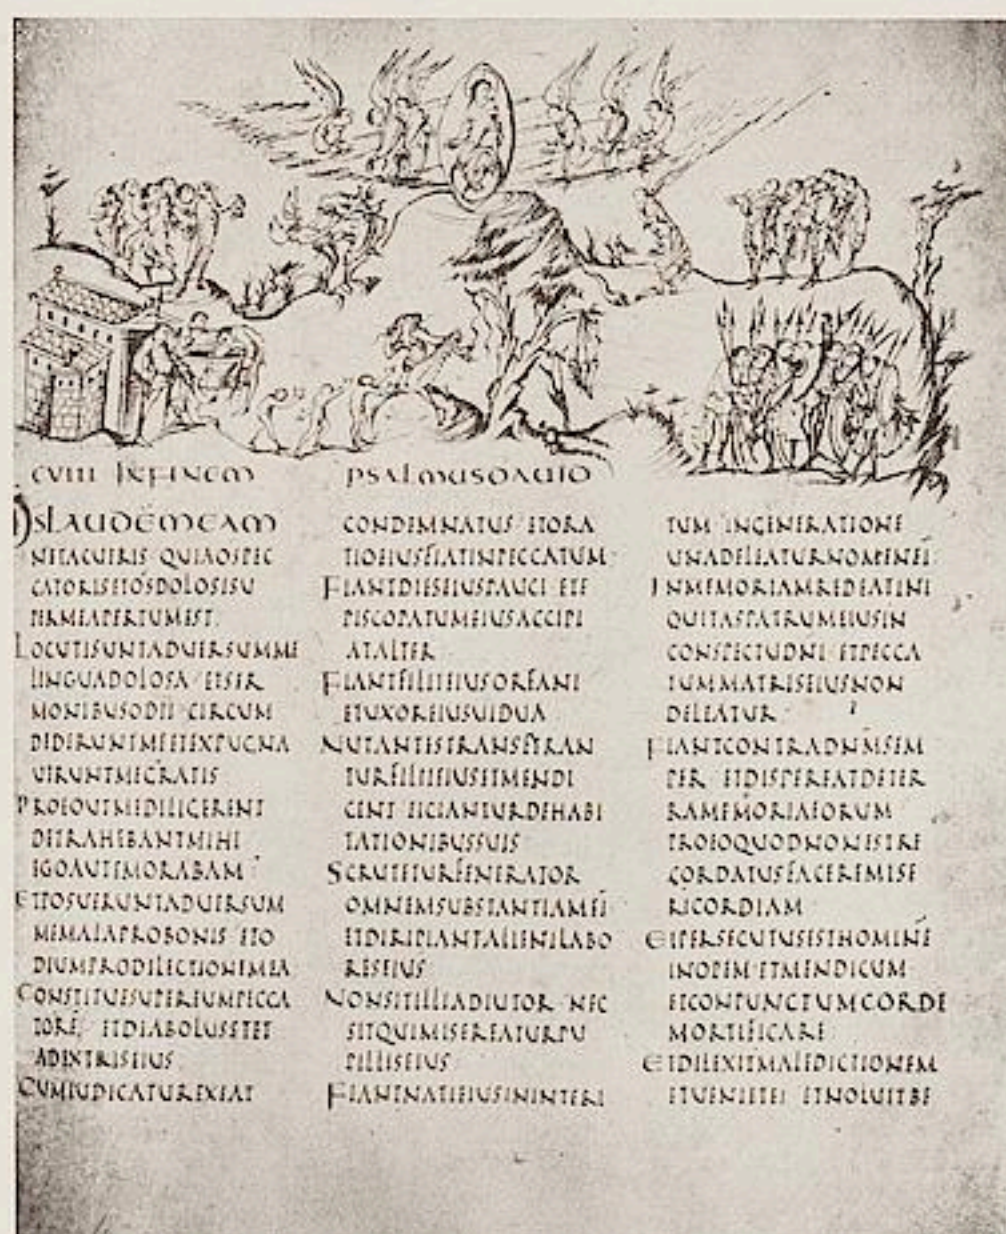 CVIII IN FINEM PSALMUS DAUID
DS LAUDEM MEAM
NE TACUERIS QUIA OS PEC
CATORIS ET OS DOLOSI SU
PER ME APERTUM EST.
LOCUTI SUNT ADUERSUM ME
LINGUA DOLOSA ET SER
MONIBUS ODII CIRCUM
DEDERUNT ME ET EXPUGNA
UERUNT ME GRATIS
PRO EO UT ME DILIGERENT
DETRAHEBANT MIHI
EGO AUTEM ORABAM
ET POSUERUNT ADUERSUM
ME MALA PRO BONIS ET O
DIUM PRO DILECTIONE MEA
CONSTITUE SUPER EUM PECCA
TORĒ, ET DIABOLUS STET
A DEXTRIS EIUS
CUM IUDICATUR EXEAT
CONDEMNATUS ET ORA
TIO EIUS FIAT IN PECCATUM
FIANT DIES EIUS PAUCI ET E
PISCOPATUM EIUS ACCIPI
AT ALTER
FIANT FILII EIUS ORFANI
ET UXOR EIUS UIDUA
NUTANTES TRANSFERAN
TUR FILII EIUS ET MENDI
CENT EICIANTUR DE HABI
TATIONIBUS SUIS
SCRUTETUR FENERATOR
OMNEM SUBSTANTIAM EĪ
ET DIRIPIANT ALIENI LABO
RES EIUS
NON SIT ILLI ADIUTOR NEC
SIT QUI MISEREATUR PU
PILLIS EIUS
FIANT NATI EIUS IN INTERI
TUM IN GENERATIONE
UNA DELEATUR NOMEN EĪ
IN MEMORIAM REDEAT INI
QUITAS PATRUM EIUS IN
CONSPECTU DNI ET PECCA
TUM MATRIS EIUS NON
DELEATUR
FIANT CONTRA DNM SEM
PER ET DISPEREAT DE TER
RA MEMORIA EORUM
PRO EO QUOD NON EST RE
CORDATUS FACERE MISE
RICORDIAM
ET PERSECUTUS EST HOMINĒ
INOPEM ET MENDICUM
ET CONPUNCTUM CORDE
MORTIFICARE
ET DILEXIT MALEDICTIONEM
ET UENIET EI ET NOLUIT BE